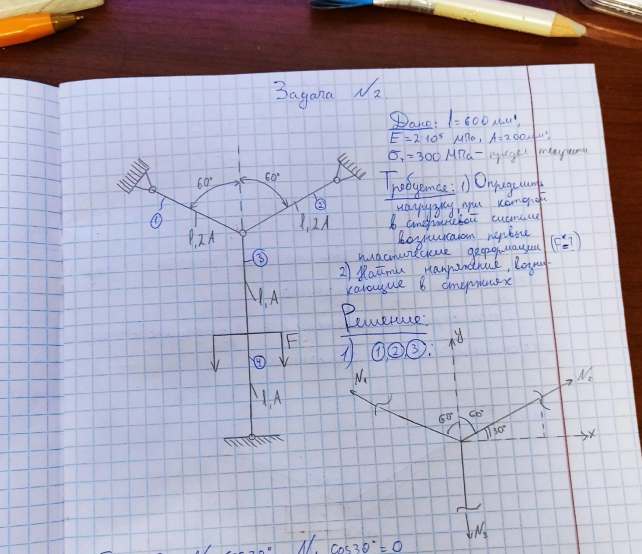 Задача №2
Дано: l=600 мм;
E=2·10⁵ МПа, A=200мм²;
σт=300 МПа - предел текучести
Требуется: 1) Определить
нагрузку, при которой
в стержневой системе
возникают первые
пластические деформации (F=?)
2) Найти напряжение, возни-
кающие в стержнях
Решение:
1) ①,②,③:
60° 60°
① l,2A
② l,2A
③
l,A
F
④
l,A
y
N₁
N₂
60° 60°
30°
x
N₃
cos30° N₁ cos30°=0